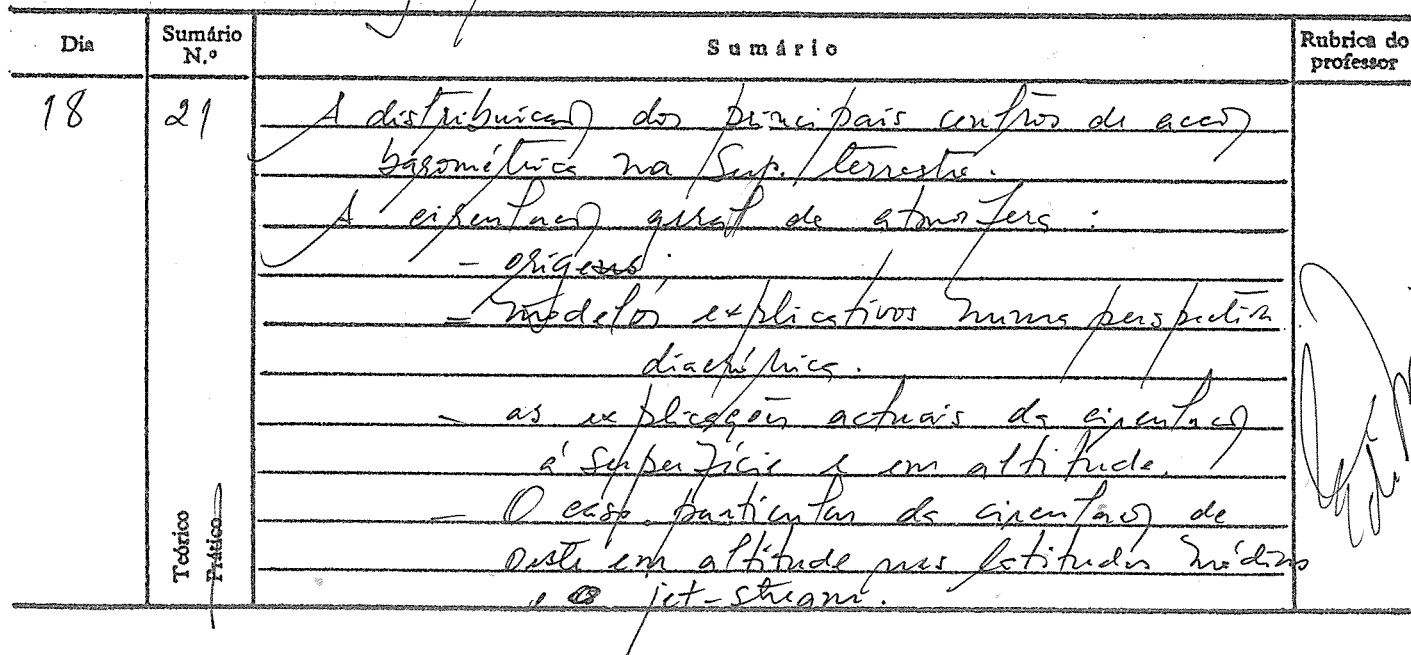 Dia Sumário N.º Sumário Rubrica do professor
18 21 A distribuição dos principais centros de acção
barométrica na Sup. terrestre.
A circulação geral da atmosfera :
- origens.
- modelos explicativos numa perspectiva
diacrónica.
- as explicações actuais da circulação
à superfície e em altitude.
- O caso particular da circulação de
oeste em altitude nas latitudes médias
e o jet-stream.
Teórico
Prático